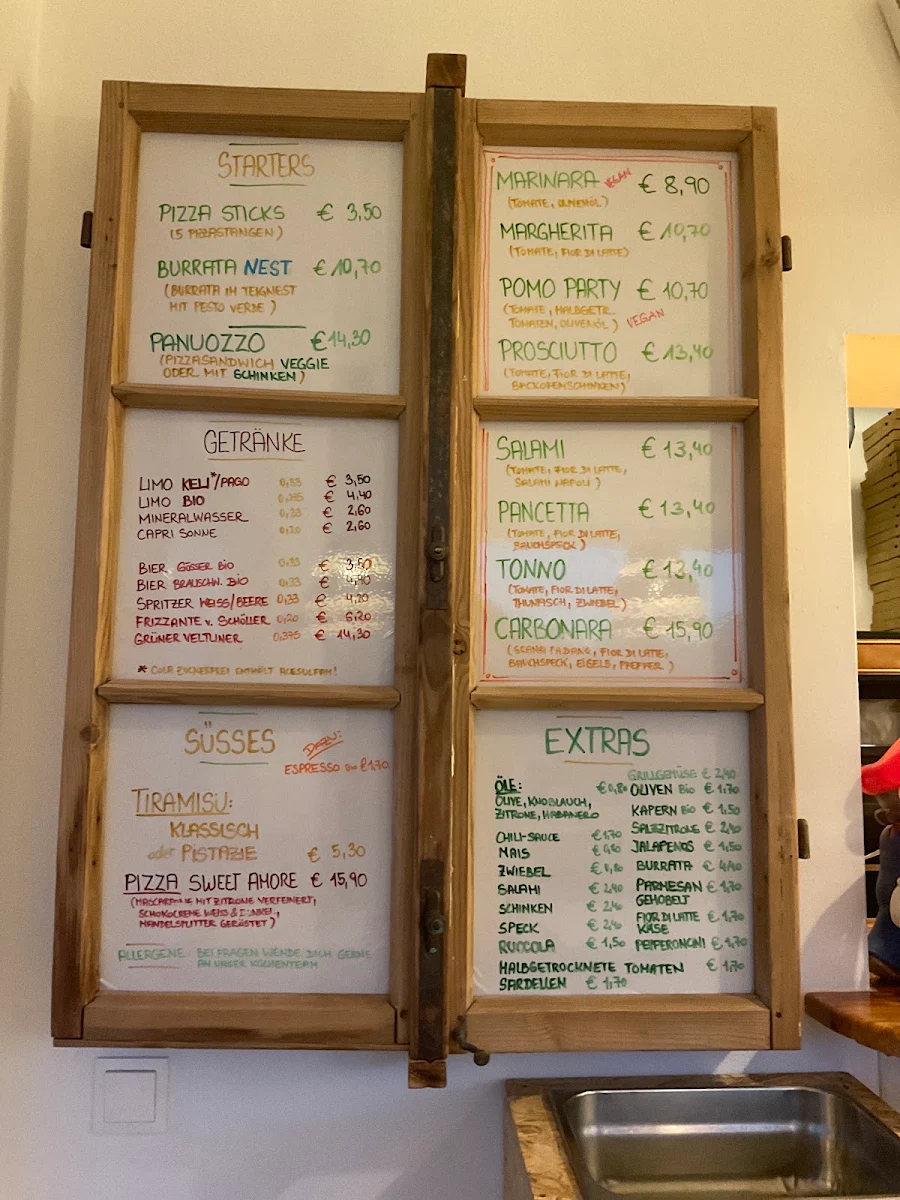 STARTERS
PIZZA STICKS € 3,50
(5 PIZZASTANGEN)
BURRATA NEST € 10,70
(BURRATA IM TEIGNEST
MIT PESTO VERDE)
PANUOZZO € 14,30
(PIZZASANDWICH VEGGIE
ODER MIT SCHINKEN)
GETRÄNKE
LIMO KELI*/PAGO 0,33 € 3,50
LIMO BIO € 4,40
MINERALWASSER 0,33 € 2,60
CAPRI SONNE € 2,60
BIER GÖSSER BIO 0,33 € 3,50
BIER BRAUSCHN. BIO 0,33 € 4,40
SPRITZER WEISS/BEERE 0,33 € 4,20
FRIZZANTE v. SCHÖLLER 0,20 € 6,20
GRÜNER VELTLINER 0,375 € 14,30
* COLA ZUCKERFREI ENTHÄLT ACESULFAM!
SÜSSES
DAZU:
ESPRESSO BIO €1,70
TIRAMISU:
KLASSISCH
oder PISTAZIE € 5,30
PIZZA SWEET AMORE € 15,90
(MASCARPONE MIT ZITRONE VERFEINERT,
SCHOKOCREME WEISS & DUNKEL,
MANDELSPLITTER GERÖSTET)
ALLERGENE: BEI FRAGEN WENDE DICH GERNE
AN UNSER KÜCHENTEAM
MARINARA VEGAN € 8,90
(TOMATE, OLIVENÖL)
MARGHERITA € 10,70
(TOMATE, FIOR DI LATTE)
POMO PARTY € 10,70
(TOMATE, HALBGETR.
TOMATEN, OLIVENÖL) VEGAN
PROSCIUTTO € 13,40
(TOMATE, FIOR DI LATTE,
BACKOFENSCHINKEN)
SALAMI € 13,40
(TOMATE, FIOR DI LATTE,
SALAMI NAPOLI)
PANCETTA € 13,40
(TOMATE, FIOR DI LATTE,
BAUCHSPECK)
TONNO € 13,40
(TOMATE, FIOR DI LATTE,
THUNFISCH, ZWIEBEL)
CARBONARA € 15,90
(GRANA PADANO, FIOR DI LATTE,
BAUCHSPECK, EIGELB, PFEFFER)
EXTRAS
ÖLE: € 0,80
OLIVE, KNOBLAUCH,
ZITRONE, HABANERO
CHILI-SAUCE €1,70
MAIS
ZWIEBEL
SALAMI € 2,40
SCHINKEN € 2,40
SPECK € 2,40
RUCCOLA € 1,50
GRILLGEMÜSE € 2,40
OLIVEN BIO € 1,70
KAPERN BIO € 1,50
SALZZITRONE € 2,40
JALAPENOS € 1,50
BURRATA € 4,40
PARMESAN € 1,70
GEHOBELT
FIOR DI LATTE € 1,70
KÄSE
PEPERONCINI € 1,70
HALBGETROCKNETE TOMATEN € 1,70
SARDELLEN € 1,70